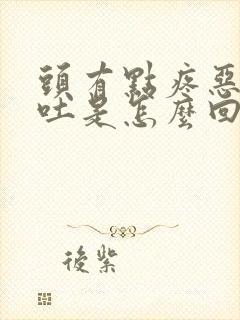 頭有點疼惡
吐是怎麼回
後紫